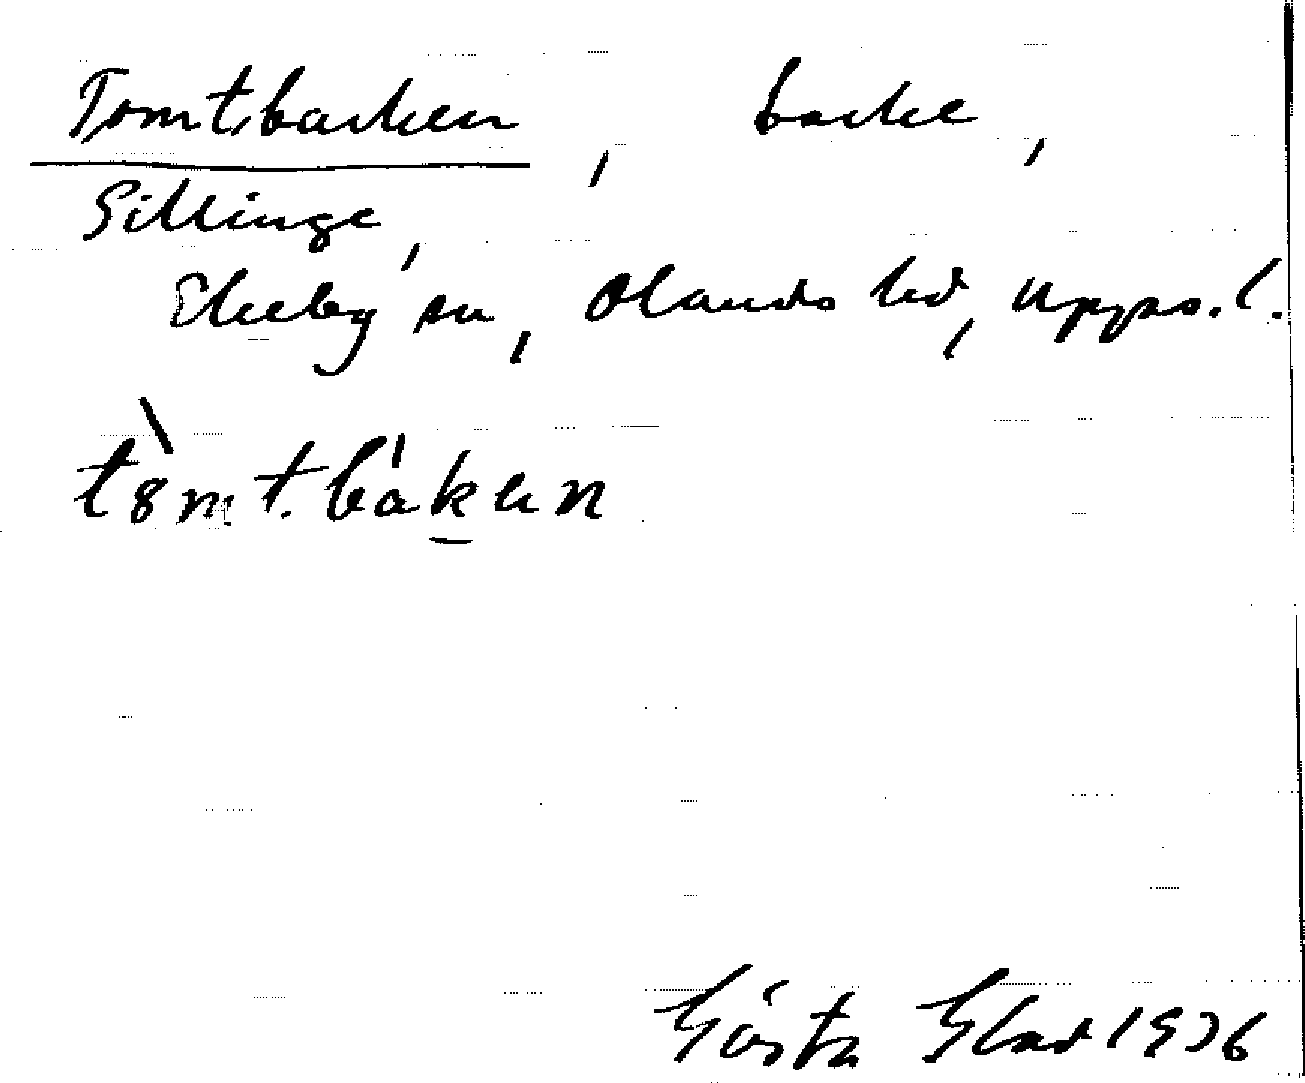 Tomtbacken, backe,
Sillinge,
Ekeby sn, Olands hd, Upps. l.
tòmt.bákɐn
Gösta Glad 1936